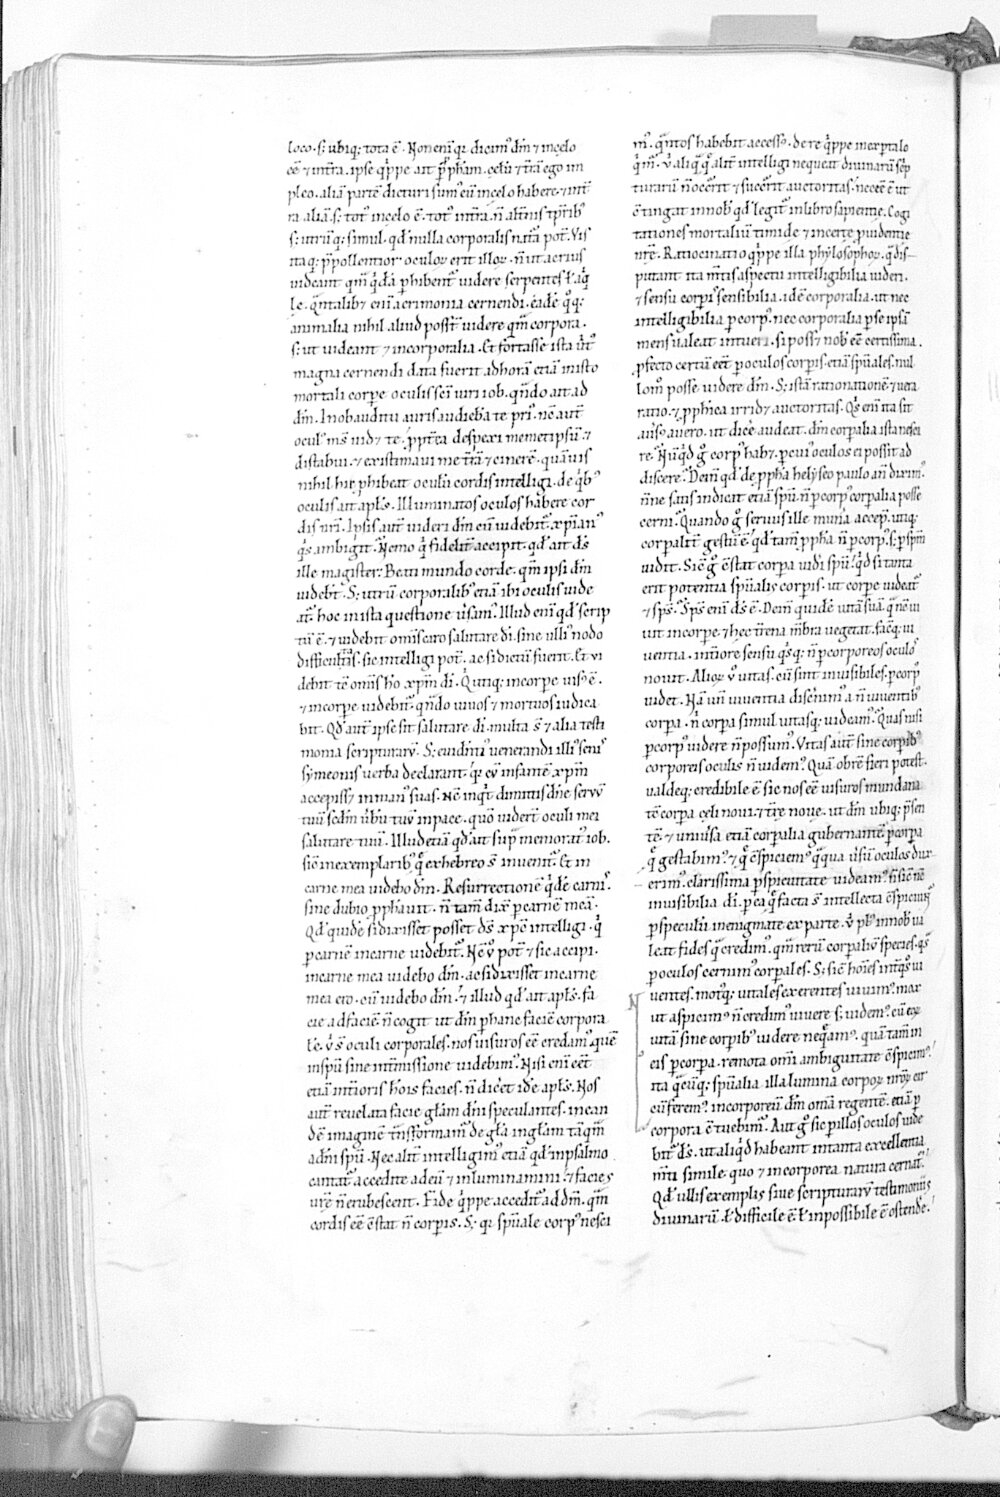 loco. s; ubiq; tota ē. Non eni᷒ q̄ dicim᷒ dm̄ ⁊ in celo
eē ⁊ in t̄ra. ipse q̄ppe ait p̄ p̄pham. celū ⁊ t̄rā ego im
pleo. aliā partē dicturi sum᷒ eū in celo habere. ⁊ in t̄
ra aliā. s; tot᷒ in celo ē. tot᷒ in t̄ra. n̄ alt̄nis tp̄rib᷒
s; utrūq; simul. qd̄ nulla corporalis nat̄a pot̄. Vis
itaq; p̄pollentior oculoꝝ erit illoꝝ. n̄ ut acrius
uideant qm̄ q̄dā phibent᷒ uidere serpentes ł aq̄
le. q̄ntalib; eni᷒ acrimonia cernendi. eadē q̄q;
animalia nihil aliud poss̄t uidere q̄m corpora.
s; ut uideant ⁊ incorporalia. Et fortasse ista ūt᷒
magna cernendi data fuerit ad horā etiā in isto
mortali corpe oculis sc̄i uiri iob. q̄ndo ait ad
dm̄. In obauditu auris audieba te pri᷒. nc̄ aut̄
ocul᷒ ms̄ uid; te. p̄pt̄ea despexi memetipsū. ⁊
distabui. ⁊ existimaui me t̄rā ⁊ cinerē. quāuis
nihil hic phibeat oculū cordis intelligi. de q̄b᷒
oculis ait apl̄s. Illuminatos oculos habere cor
dis ur̄i. Ipsis aut̄ uideri dm̄ cū uidebit᷒. xp̄ian᷒
q̄s ambigit. Nemo q̄ fidelit̄ accipit. qd̄ ait ds̄
ille magister: Beati mundo corde. qm̄ ipsi dm̄
uidebt̄. S; utrū corporalib᷒ etiā ibi oculis uide
at᷒. hoc in ista questione u̇sam᷒. Illud eni᷒ qd̄ scrip
tū ē. ⁊ uidebit om̄is caro salutare di̅. sine ulli᷒ nodo
difficultatis. sic intelligi pot̄. ac si dictū fuerit. Et ui
debit te om̄is ho xp̄m di̅. Q̇ utiq; in corpe uis᷒ ē.
⁊ in corpe uidebit᷒. q̄ndo uiuos ⁊ mortuos iudica
bit. Qd̄ aut̄ ipse sit salutare di̅. multa s̄ ⁊ alia testi
monia scripturarū. S; euident᷒ uenerandi illi᷒ seni᷒
symeonis uerba declarant. q̄ cū infantē xp̄m
accepiss; in man᷒ suas. Nc̄ inq̇t dimittis dn̄e seruū
tuū scdm̄ u̇bū tuū in pace. quō uider̄t oculi mei
salutare tuū. Illud etiā qd̄ ait sup̄memorat᷒ iob.
sic̄ in exemplarib᷒ q̄ ex hebreo s̄ inuenit᷒. Et in
carne mea uidebo dm̄. Resurrectionē q̇dē carni᷒.
sine dubio pphauit. n̄ tam̄ dix̄ p̄ carnē meā.
Qd̄ quidē si dixisset posset ds̄ xp̄c intelligi. q̄
p̄ carnē in carne uidebit᷒. Nc̄ u̇ pot̄ ⁊ sic accipi.
in carne mea uidebo dm̄. ac si dixisset in carne
mea ero. cū uidebo dm̄. ⁊ illud qd̄ ait apl̄s. fa
cie ad faciē. n̄ cogit ut dm̄ p̄ hanc faciē corpora
lē. u̇ s̄ oculi corporales. nos uisuros eē credam᷒. quē
in spū sine int̄missione uidebim᷒. Nisi eni᷒ eēt
etiā int̄ioris ho̅is facies. n̄ dic̄et idē apl̄s. Nos
aut̄ reuelata facie gl̄am dn̄i speculantes. in ean
dē imaginē t̄nsformam᷒ de gl̄a in gl̄am tāq̄m
a dn̄i spū. Nec alit̄ intelligim᷒ etiā qd̄ in psalmo
cantat᷒. accedite ad eū ⁊ inluminamini. ⁊ facies
ur̄e n̄ erubescent. Fide q̄ppe accedit᷒ ad dm̄. q̄m
cordis eē c̄stat n̄ corpis. S; q̄ sp̄uale corp᷒ nesci
m᷒. q̄ntos habebit access᷒. de re q̄ppe inexptalo
q̇m᷒. u̇ aliq̄ q̄ alit̄ intelligi nequeat diuinarū sc̄p
turarū n̄ occ̄rit ⁊ succ̄rit auctoritas. neceē ē ut
c̄tingat in nob᷒ qd̄ legit᷒ in libro sapientie. Cogi
tationes mortaliū timide ⁊ incerte p̄uidentie
nr̄e. Ratiocinatio q̄ppe illa phylosophoꝝ. q̄ dis
putant ita m̄tis aspectu intelligibilia uideri.
⁊ sensu corp᷒i sensibilia. idē corporalia. ut nec
intelligibilia p̄ corp᷒. nec corporalia p̄ se ipsā
mens ualeat intueri. si poss; nob᷒ eē certissima.
p̄fecto certū eēt p̄ oculos corpis. etiā sp̄uales. nul
lom᷒ posse uidere dm̄. S; istā rationationē ⁊ uera
ratio. ⁊ pphica irrid; auctoritas. Q̇s eni᷒ ita sit
aus᷒ a uero. ut dic̄e audeat. dm̄ corpalia ista nesci
re. Nūq̇d g̊ corp᷒ hab;. p̄ cui᷒ oculos ei possit ad
discere. Dein̄ qd̄ de ppha helyseo paulo an̄ dixim᷒.
n̄ne satis indicat etiā spū. n̄ p̄ corp᷒ corpalia posse
cerni. Quando g̊ seruus ille mun̄a accep̄. utiq;
corpalit̄ gestū ē. qd̄ tam̄ ppha n̄ p̄ corp᷒. s; p̄ spm̄
uidit. Sic̄ g̊ c̄stat corpa uidi spū. q̇d si tanta
erit potentia sp̄ualis corpis. ut corpe uideat᷒
⁊ sps̄. Sps̄ eni᷒ ds̄ ē. Dein̄ quidē uitā suā. q̄ nc̄ ui
uit in corpe. ⁊ hec t̄rena m̄bra uegetat. facq; ui
uentia. int̄iore sensu q̄sq; n̄ p̄ corporeos oculos
nouit. Alioꝝ u̇ uitas. cū sint inuisibiles. p̄ corp᷒
uidet. Nā un̄ uiuentia disc̄nim᷒ a n̄ uiuentib᷒
corpa. n̄ corpa simul uitasq; uideam᷒. Quas nisi
p̄ corp᷒ uidere n̄ possum᷒. Vitas aut̄ sine corpib᷒
corporeis oculis n̄ uidem᷒. Quā obrē fieri potest.
ualdeq; credibile ē sic nos eē uisuros mundana
tc̄ corpa celi noui. ⁊ t̄re noue. ut dm̄ ubiq; p̄sen
tē. ⁊ uniu̇sa etiā corpalia gubernantē. p̄ corpa
q̄ gestabim᷒. ⁊ q̄ c̄spiciem᷒ q̄q̄ua u̇sū oculos dux
erim᷒. clarissima p̄spicuitate uideam᷒. n̄ sic̄ nc̄
inuisibilia di̅. p̄ ea q̄ facta s̄ intellecta c̄spiciunt᷒
p̄ speculū in enigmate ex parte. u̇ pl᷒ in nob᷒ ua
leat fides q̄ credim᷒. q̄m rerū corpaliū species. q̄s
p̄ oculos cernim᷒ corpales. S; sic̄ ho̅ies int̄ q̄s ui
uentes. motq; uitales exerentes uiuim᷒. mox
ut aspicim᷒ n̄ credim᷒ uiuere s; uidem᷒. cū eoꝝ
uitā sine corpib᷒ uidere neq̄am᷒. quā tam̄ in
eis p̄ corpa. remota om̄i ambiguitate c̄spicim᷒.
ita q̄cūq; sp̄ualia illa lumina corpoꝝ nr̄oꝝ cir
cūferem᷒. incorporeū dm̄ om̄a regentē. etiā p̄
corpora c̄tuebim᷒. Aut g̊ sic p̄ illos oculos uide
bit᷒ ds̄. ut aliq̇d habeant in tanta excellentia
m̄ti simile. quo ⁊ incorporea natura cernat᷒.
Qd̄ ullis exemplis siue scripturarū testimoniis
diuinarū. ł difficile ē. ł inpossibile ē ostende᷒.